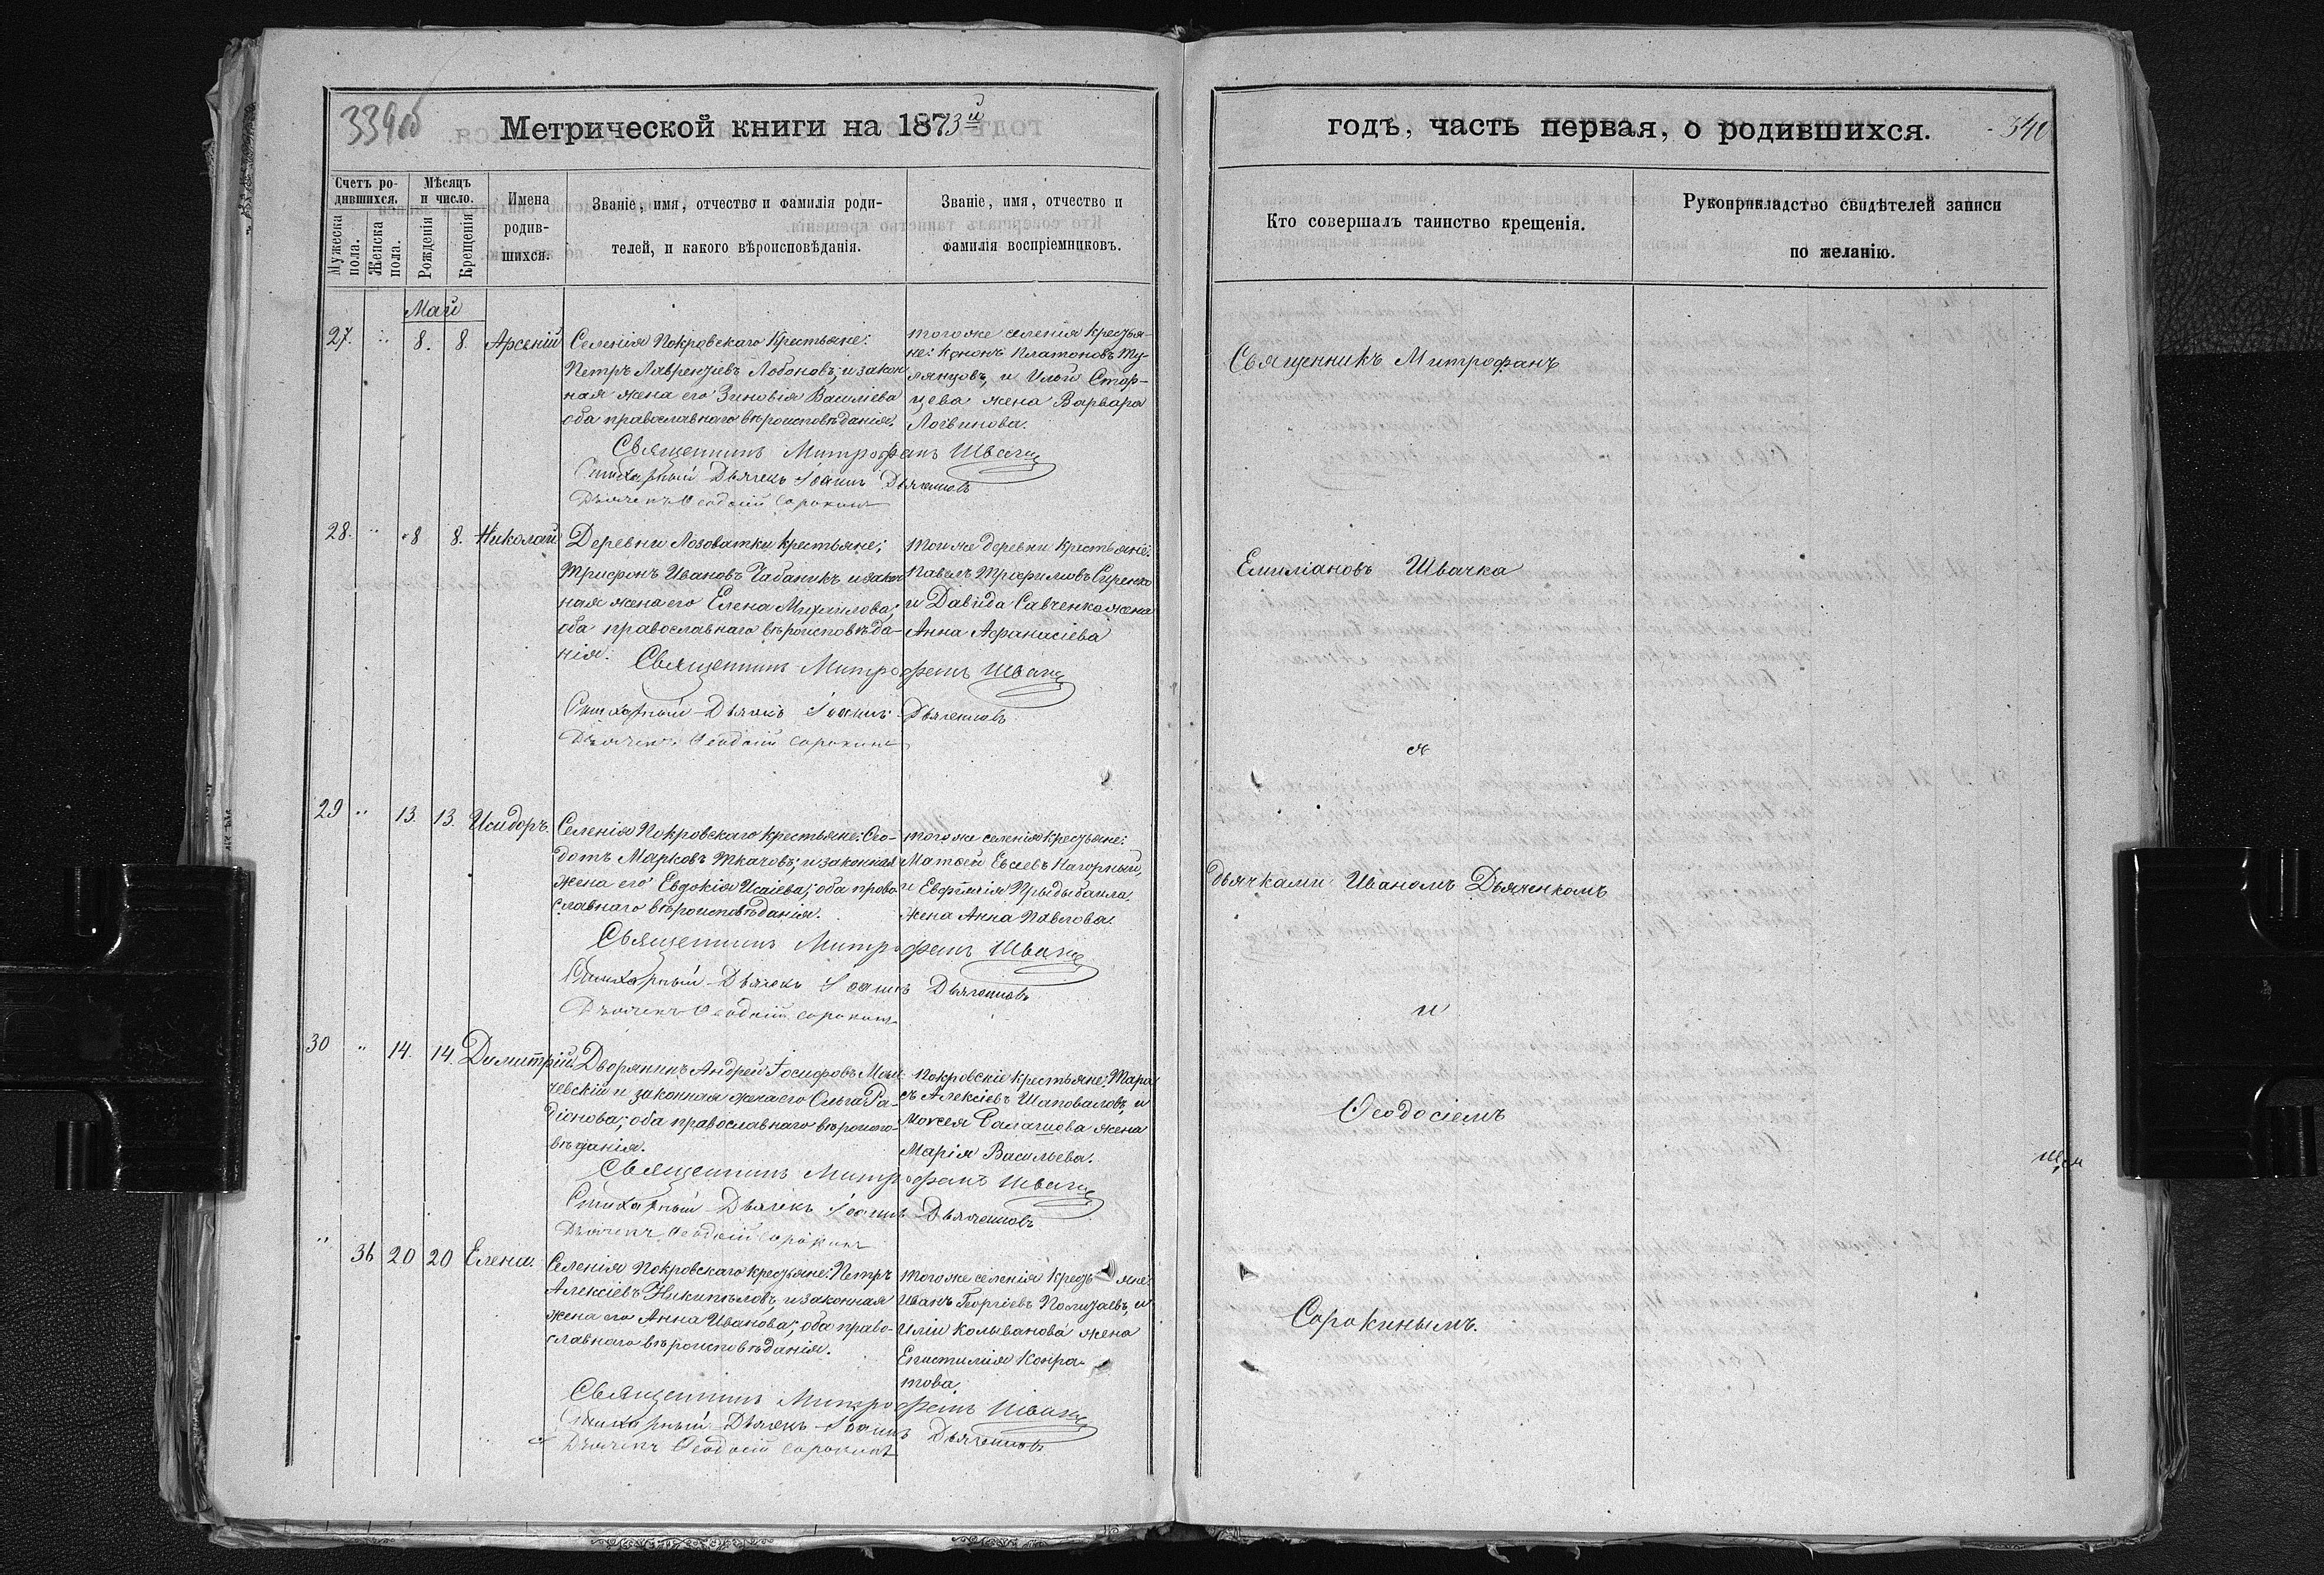 339об
Метрической книги на 1873й
годъ, часть первая, о родившихся.
340
Счетъ ро-
дившихся.
Мужеска
пола.
Женска
пола.
Мѣсяцъ
и число.
Рожденія
Крещенія
Имена
родив-
шихся.
Званіе, имя, отчество и фамилія роди-
телей, и какого вѣроисповѣданія.
Званіе, имя, отчество и
фамилія воспріемниковъ.
Кто совершалъ таинство крещенія.
Рукоприкладство свидѣтелей записи
по желанію.
Май
27. 8. 8. Арсеній
Селенія Покровскаго Крестьяне:
Петръ Лаврентіевъ Лобоновъ; и закон
ная жена его Зиновія Василіева
оба православнаго вѣроисповѣданія.
тогоже селенія Кресть-
яне: Кононъ Платоновъ
и Иліи
жена Варвара
Логвинова.
Священникъ Митрофанъ Швачка
Стихарный Дьячекъ Іоаннъ Дьяченковъ
Дьячекъ Ѳеодосій Сорокинъ
28. 8 8. Николай
Деревни Лозоватки крестьяне;
Трифонъ Ивановъ Чабаникъ и закон
ная жена его Елена Михаилова;
оба православнаго вѣроисповѣда-
нія.
тоиже деревни крестьяне:
Павелъ Трофимовъ Сиренко
и Давида Савченка жена
Анна Афанасіева
Священникъ Митрофанъ Швачка
Стихарный Дьячекъ Іоаннъ Дьяченковъ
Дьячекъ Ѳеодосій Сорокинъ
29 13. 13. Исидоръ.
Селенія Покровскаго крестьяне: Ѳео-
дотъ Марковъ Ткачовъ; и законная
жена его Евдокія Исаіева; оба право
славнаго вѣроисповѣданія.
тогоже селенія крестьяне:
Матѳей Евсеевъ Нагорный,
и Евфимія
жена Анна Павлова.
Священникъ Митрофанъ Швачка
Стихарный Дьячекъ Іоаннъ Дьяченковъ
Дьячекъ Ѳеодосій Сорокинъ
30 14. 14. Димитрій.
Дворянинъ Андрей Іосифовъ
чевскій и законная жена его Ольга Ра-
діонова; оба православнаго вѣроиспо-
вѣданія.
Покровскіе крестьяне: Тара
съ Алексіевъ Шаповаловъ, и
Моисея жена
Марія Васильева.
Священникъ Митрофанъ Швачка
Стихарный Дьячекъ Іоаннъ Дьяченковъ
Дьячекъ Ѳеодосій Сорокинъ
36 20 20 Елена.
Селенія Покровскаго крестьяне: Петръ
Алексіевъ и законная
жена его Анна Иванова; оба право-
славнаго вѣроисповѣданія.
тогоже селенія Крестьяне:
Иванъ Георгіевъ и
Иліи Колыванова жена
Епистимія Конра-
това.
Священникъ Митрофанъ Швачка
Стихарный Дьячекъ Іоаннъ Дьяченковъ
Дьячекъ Ѳеодосій Сорокинъ
Священникъ Митрофанъ
Емиліановъ Швачка
съ
дьячками Иваномъ Дьяченкомъ
и
Ѳеодосіемъ
Сорокинымъ.